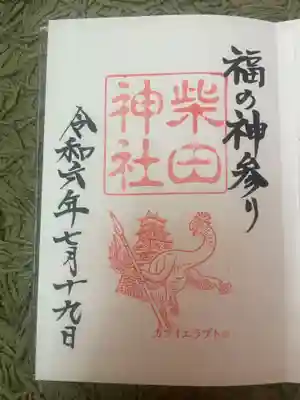 福の神参り
柴田
神社
令和六年七月十九日
カツイエラプトル